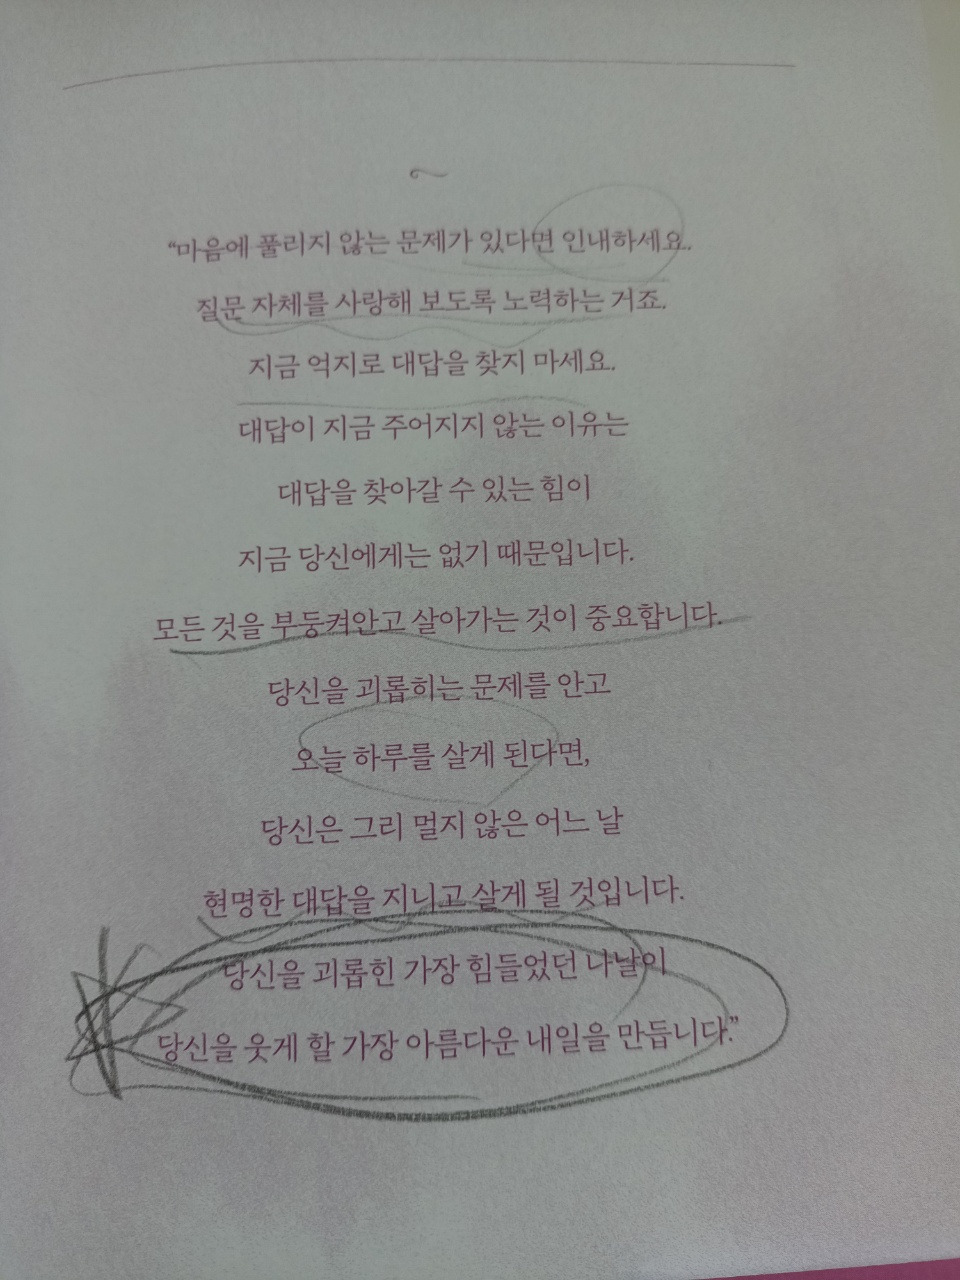 “마음에 풀리지 않는 문제가 있다면 인내하세요.
질문 자체를 사랑해 보도록 노력하는 거죠.
지금 억지로 대답을 찾지 마세요.
대답이 지금 주어지지 않는 이유는
대답을 찾아갈 수 있는 힘이
지금 당신에게는 없기 때문입니다.
모든 것을 부둥켜안고 살아가는 것이 중요합니다.
당신을 괴롭히는 문제를 안고
오늘 하루를 살게 된다면,
당신은 그리 멀지 않은 어느 날
현명한 대답을 지니고 살게 될 것입니다.
당신을 괴롭힌 가장 힘들었던 나날이
당신을 웃게 할 가장 아름다운 내일을 만듭니다.”